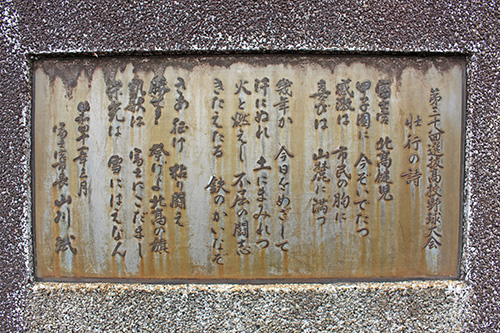 第三十八回選抜高校野球大会
壮行の詩
富士宮 北高健児
甲子園に 今ぞいでたつ
感激は 市民の胸に
喜びは 山麓に満つ
幾年か 今日をめざして
汗にぬれ 土にまみれつ
火と燃えし 不屈の闘志
きたえたる 鉄のかいなぞ
さあ征け 粘り闘え
勝て 挙げよ北高の旗
凱歌は 富士にこだまし
栄光は 雪にはえなん
年三月
富士宮市長 山川 斌